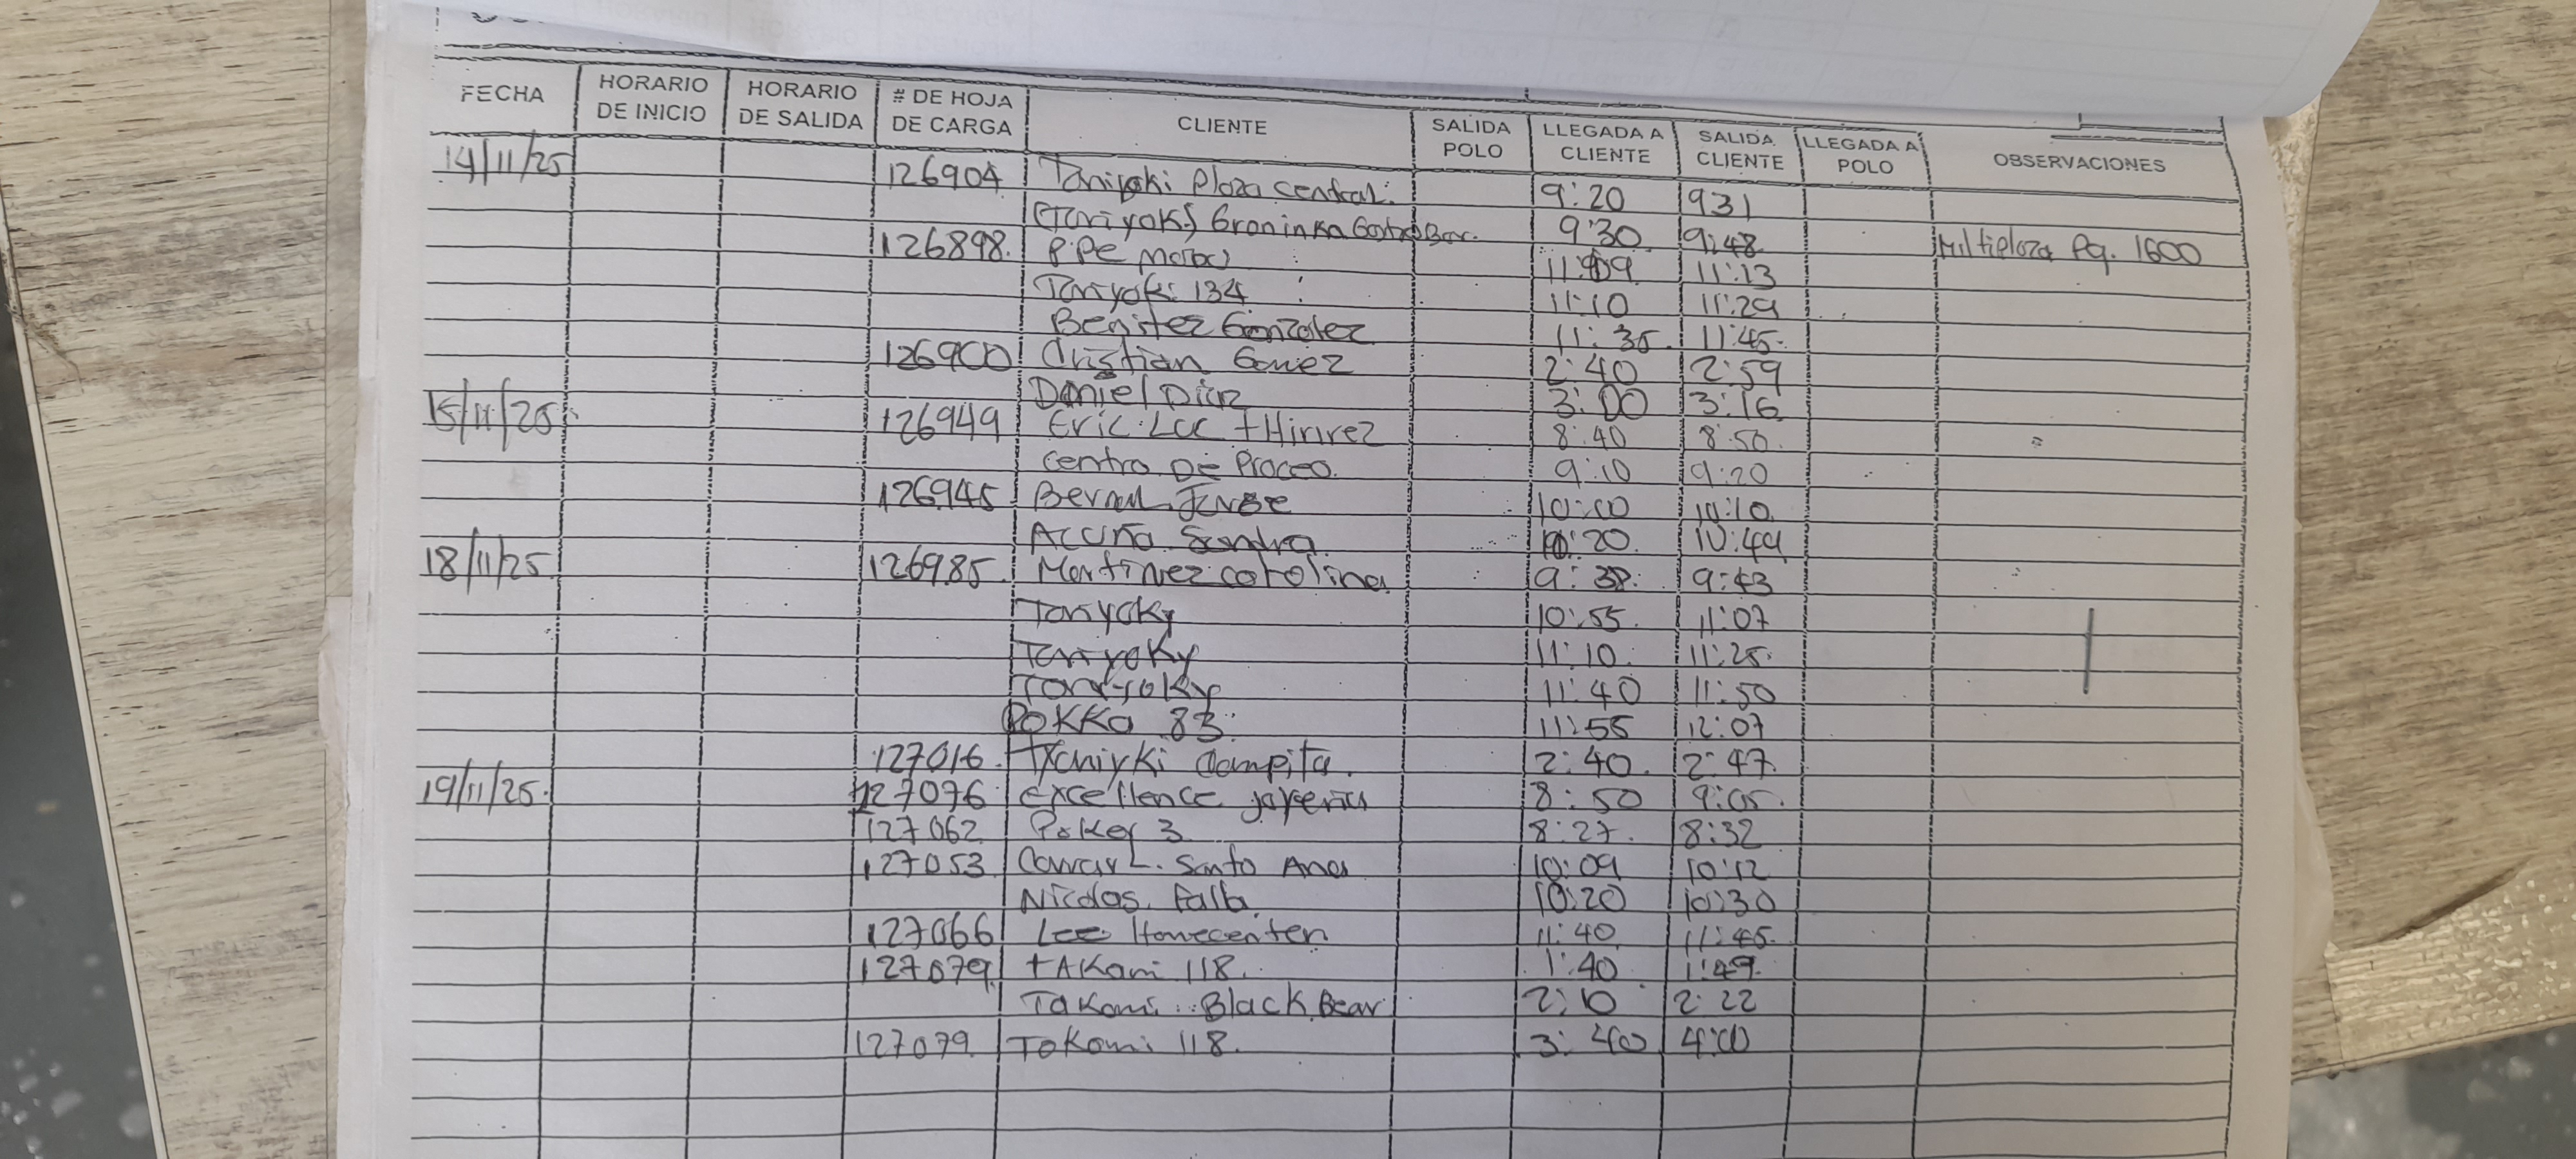 FECHA HORARIO DE INICIO HORARIO DE SALIDA # DE HOJA DE CARGA CLIENTE SALIDA POLO LLEGADA A CLIENTE SALIDA CLIENTE LLEGADA A POLO OBSERVACIONES
14/11/25 126904 Taniyoki Plaza Central. 9:20 931
(Taniyoki) Gastro Bar. 9:30 9:48 Multiplaza Pq. 1600
126898. 11:09 11:13
Taniyoki 134 11:10 11:29
Benitez Gonzalez 11:35 11:45
126900 Cristian Gomez 2:40 2:59
Daniel Diaz 3:00 3:16
15/11/25 126949 Eric 8:40 8:50
Centro De Proceo. 9:10 9:20
126945 10:00 10:10
Acuña Sandra 10:20 10:49
18/11/25 126985 Martinez Carolina 9:38 9:43
Tanyoky 10:55 11:07
Tanyoky 11:10 11:25
Tanyoky 11:40 11:50
POKKa 83 11:55 12:07
127016 2:40 2:47
19/11/25 127076 Excellence 8:50 9:05
127062 Poker 3 8:27 8:32
127053 Santo Ana 10:09 10:12
Nicolas. Falla 10:20 10:30
127066 Lee Homecenter 11:40 11:45
127079 TAKami 118. 1:40 1:49
Takami Black Bear 2:10 2:22
127079 Takami 118. 3:40 4:00